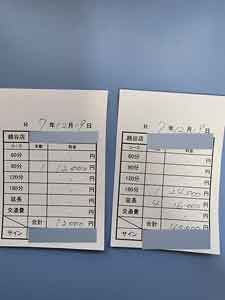 R 7年12月19日
越谷店
コース 本数 料金
60分 円
90分 1 12,000円
120分 円
180分 円
延長 円
交通費 円
合計 12,000円
サイン
R 7年12月19日
コース 本数 料金
60分 円
90分 円
120分 円
180分 1 24,000円
延長 4 16,000円
交通費 円
合計 40,000円
サイン